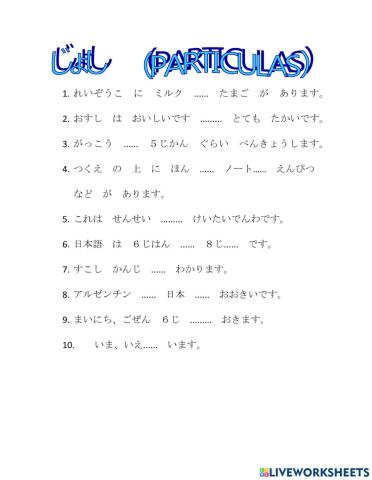 じょし (PARTICULAS)
1. れいぞうこ に ミルク ...... たまご が あります。
2. おすし は おいしいです ......... とても たかいです。
3. がっこう ...... ５じかん ぐらい べんきょうします。
4. つくえ の 上 に ほん ...... ノート...... えんぴつ
など が あります。
5. これは せんせい ......... けいたいでんわです。
6. 日本語 は ６じはん ...... ８じ...... です。
7. すこし かんじ ...... わかります。
8. アルゼンチン ...... 日本 ...... おおきいです。
9. まいにち、ごぜん ６じ ......... おきます。
10. いま、いえ...... います。
LIVEWORKSHEETS